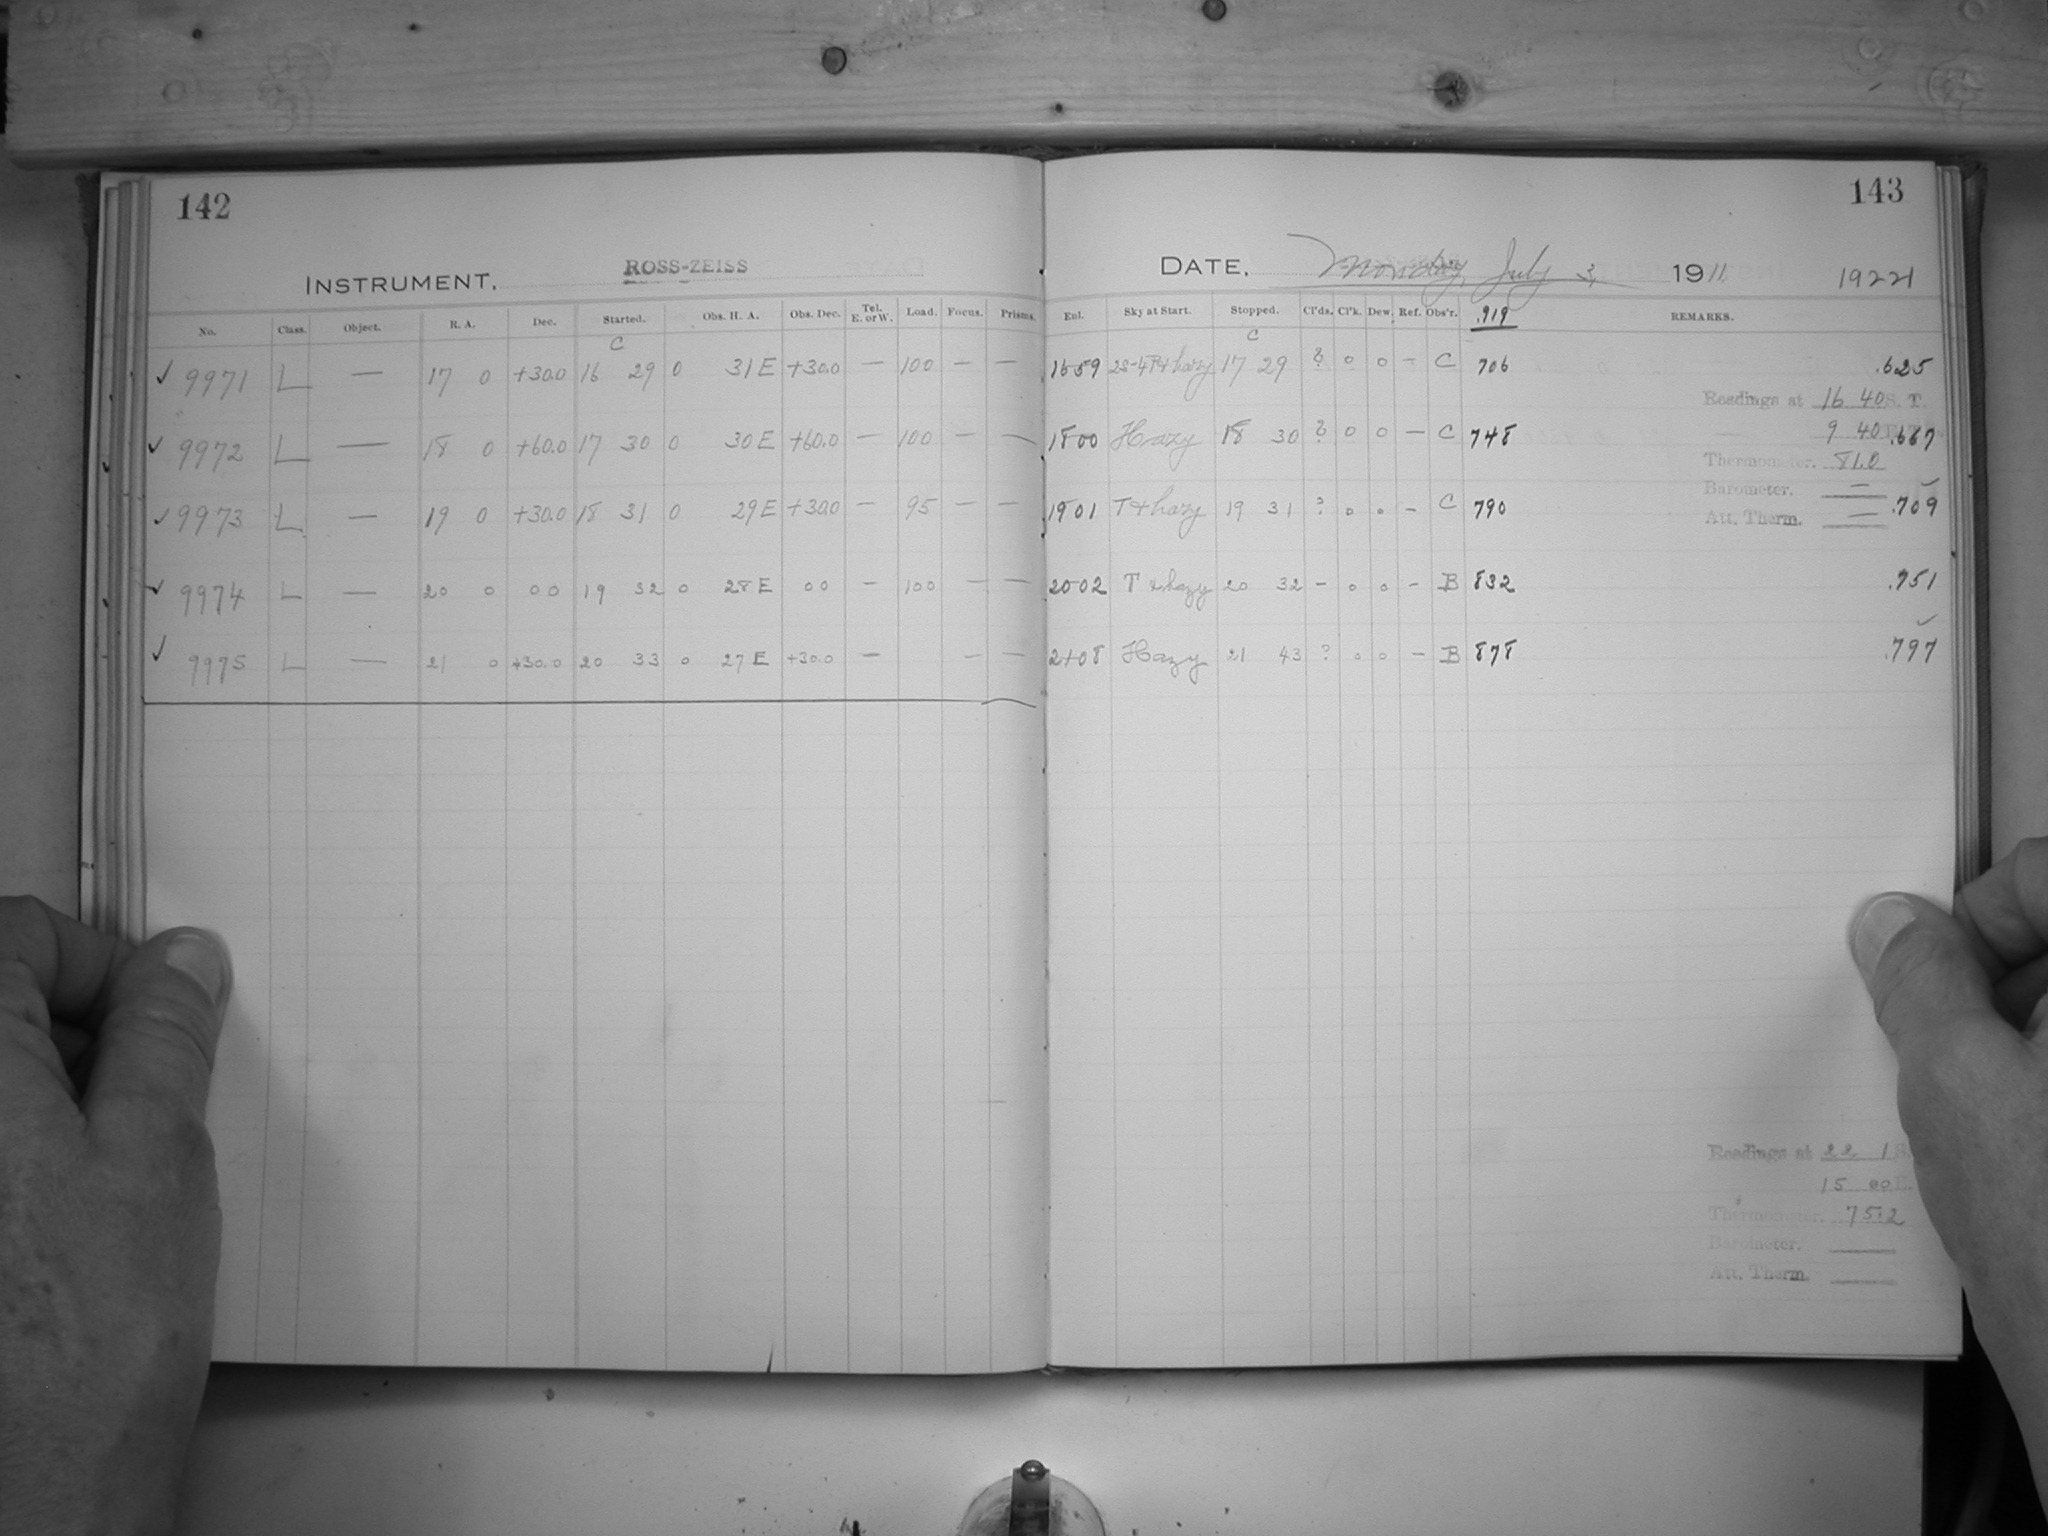 142
INSTRUMENT. ROSS-ZEISS
No. Class. Object. R. A. Dec. Started. Obs. H. A. Obs. Dec. Tel. E. or W. Load. Focus. Prisms.
C
✓ 9971 L — 17 0 +30.0 16 29 0 31 E +30.0 — 100 — —
✓ 9972 L — 18 0 +60.0 17 30 0 30 E +60.0 — 100 — —
✓ 9973 L — 19 0 +30.0 18 31 0 29 E +30.0 — 95 — —
✓ 9974 L — 20 0 00 19 32 0 28 E 00 — 100 — —
✓ 9975 L — 21 0 +30.0 20 33 0 27 E +30.0 — — —
143
DATE, Monday, July 3, 1911 19221
Eul. Sky at Start. Stopped. Cl'ds. Cl'k. Dew. Ref. Obs'r. .919 REMARKS.
C
1659 hazy 17 29 ? 0 0 — C 706 .625
Readings at 16 40 S. T.
1800 Hazy 18 30 ? 0 0 — C 748 9 40 .667
Thermometer. 81.0
Barometer. —
1901 T & hazy 19 31 ? 0 0 — C 790 .709
Att. Therm. —
2002 T & hazy 20 32 — 0 0 — B 832 .751
2108 Hazy 21 43 ? 0 0 — B 878 .797
Readings at 22 1 S.
15 00 E.
Thermometer. 75.2
Barometer. —
Att. Therm. —